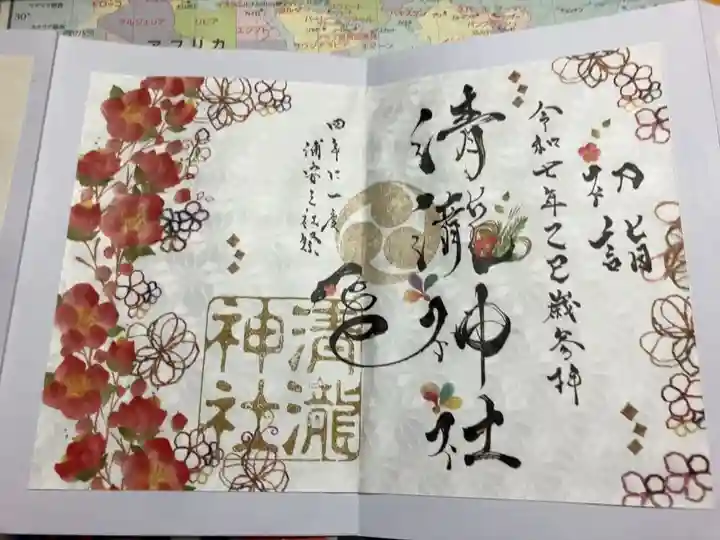 初詣
令和七年乙巳歳参拝
清瀧神社
四年に一度
浦安三社祭
清瀧
神社
アフリカ
アルジェリア
リビア
エジプト
30°